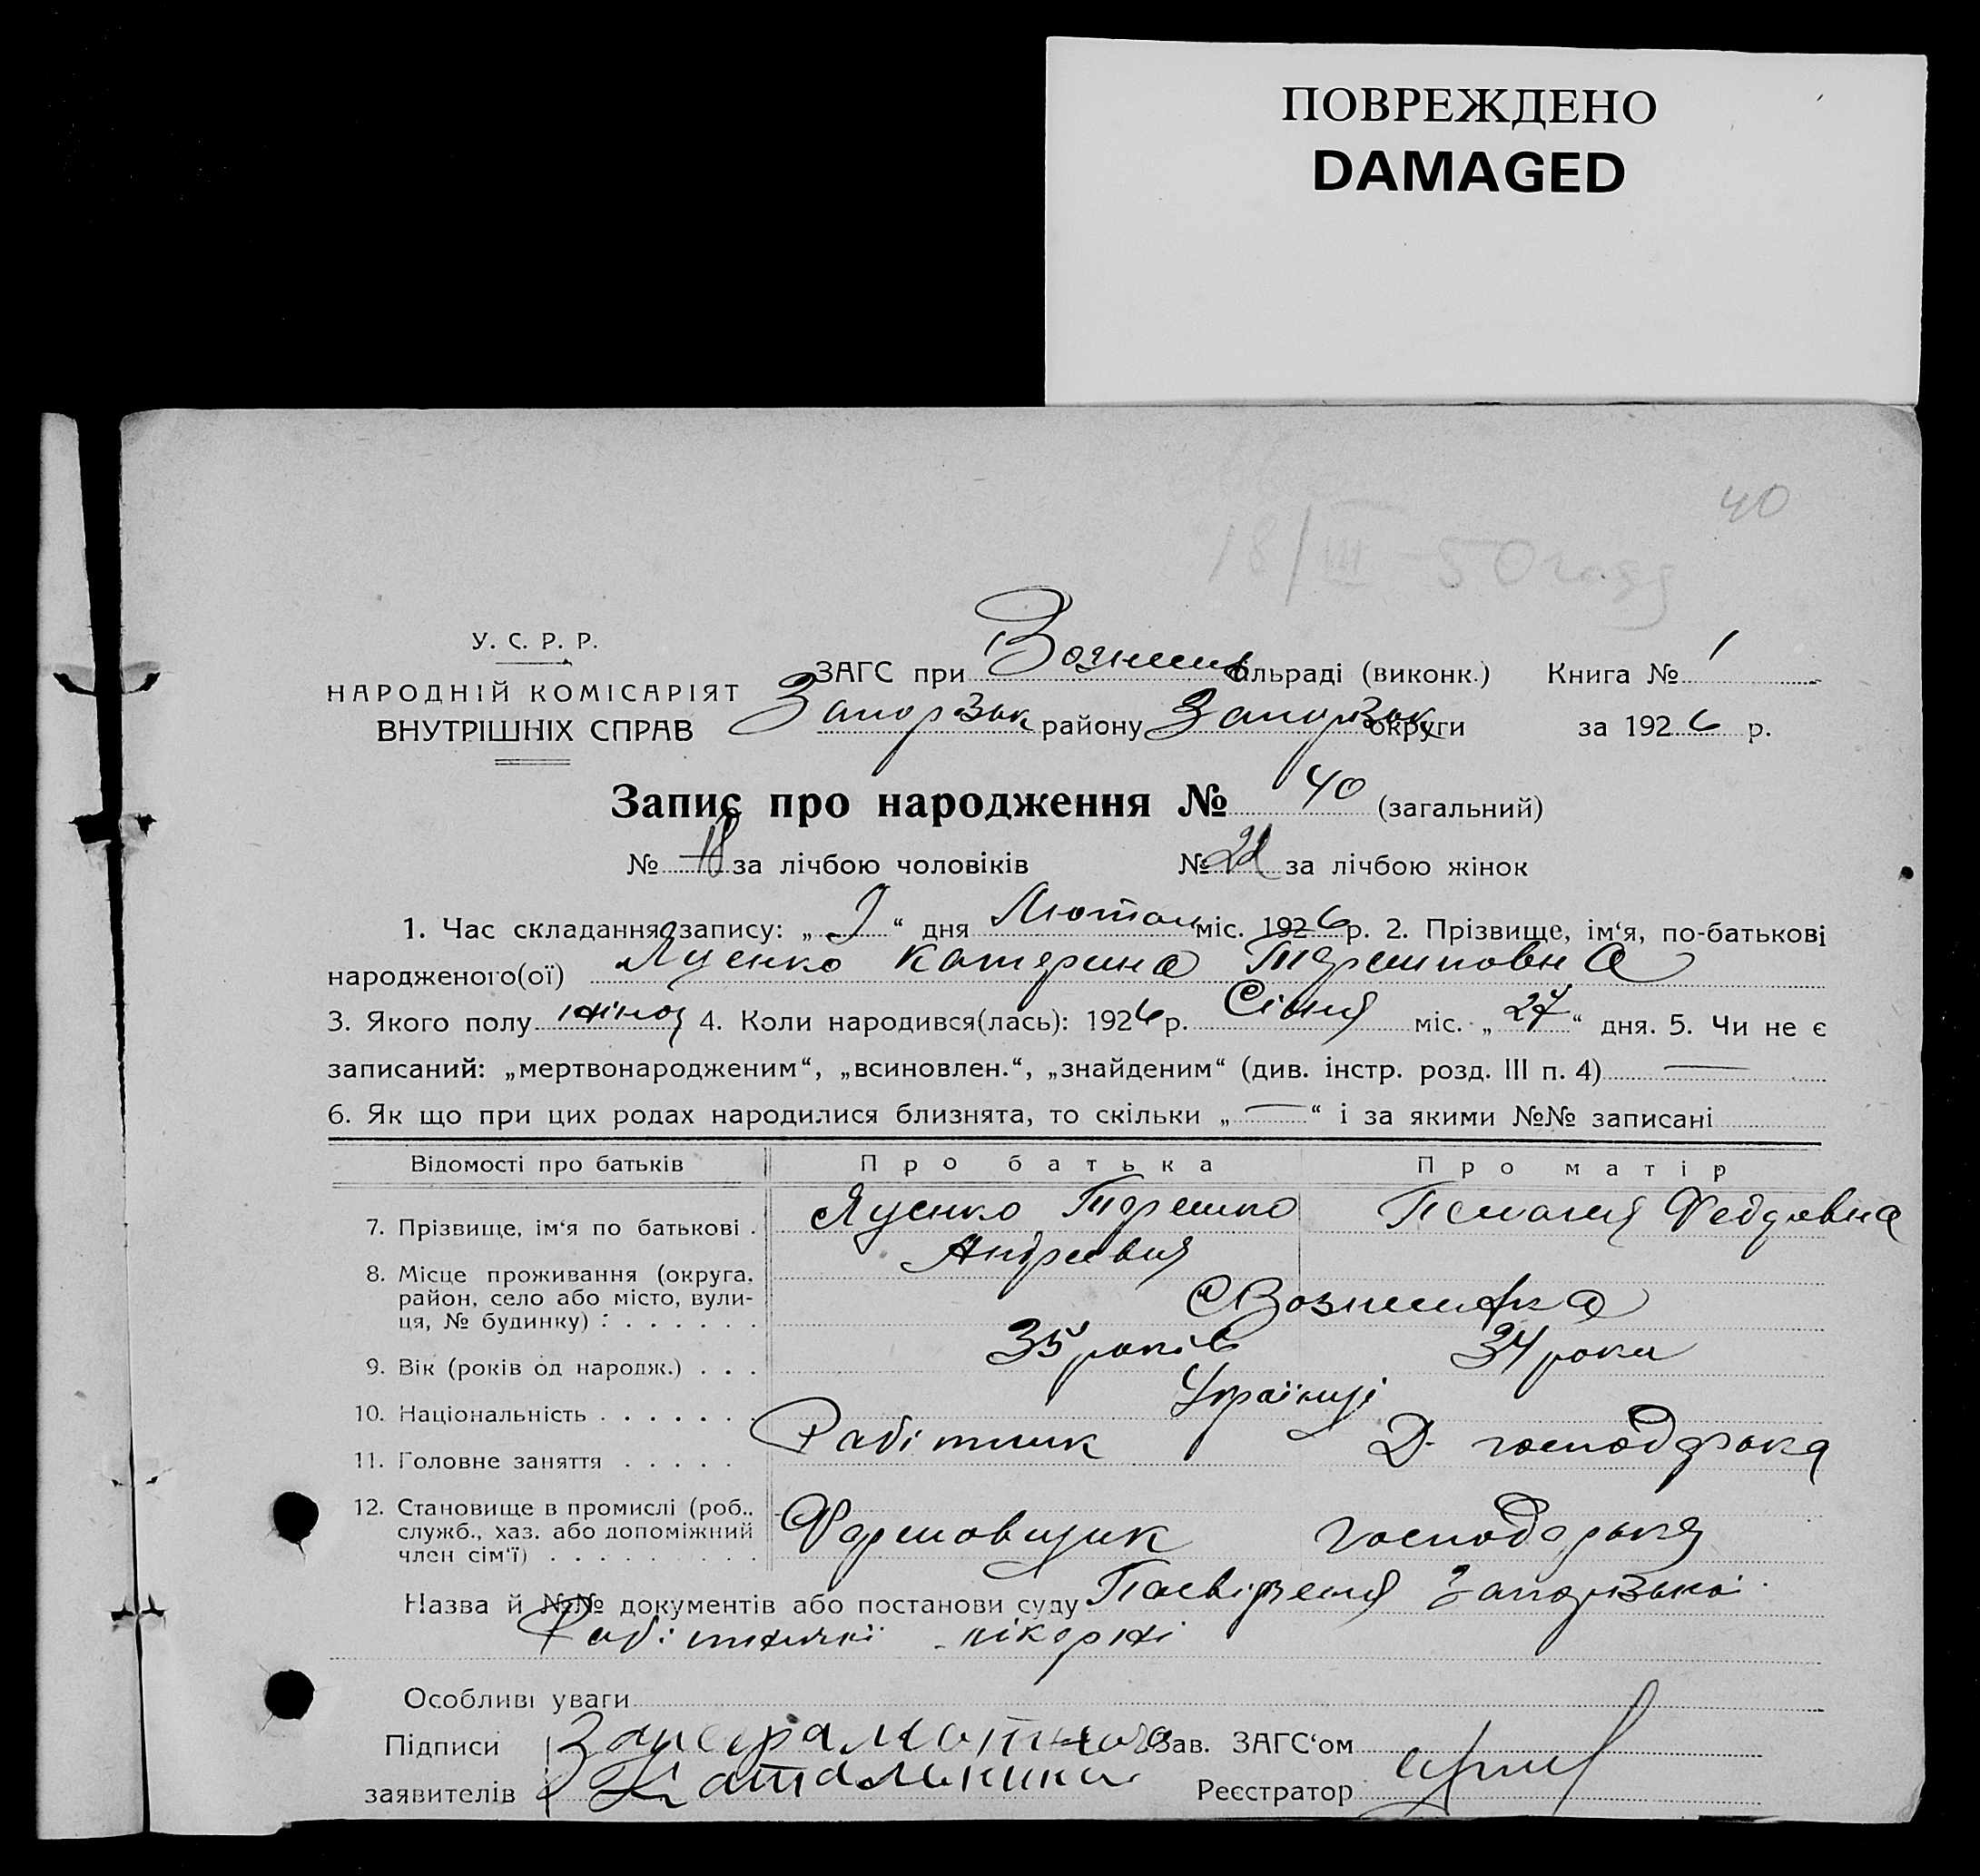 ПОВРЕЖДЕНО
DAMAGED
40
18/III - 50 года
У. С. Р. Р.
НАРОДНІЙ КОМІСАРІЯТ
ВНУТРІШНІХ СПРАВ
ЗАГС при Вознесен сільраді (виконк.) Книга № 1
Запорізьк району Запорізьк округи за 1926 р.
Запис про народження № 40 (загальний)
№ 18 за лічбою чоловіків № 22 за лічбою жінок
1. Час складання запису: „ “ дня Лютого міс. 1926 р. 2. Прізвище, ім‘я, по-батькові
народженого(ої) Яценко Катерина
3. Якого полу жіноч 4. Коли народився(лась): 1926 р. Січня міс. „ 27 “ дня. 5. Чи не є
записаний: „мертвонародженим“, „всиновлен.“, „знайденим“ (див. інстр. розд. III п. 4) —
6. Як що при цих родах народилися близнята, то скільки „ — “ і за якими №№ записані
Відомості про батьків Про батька Про матір
7. Прізвище, ім‘я по батькові . Яценко Пелагея Федоровна
Андреевич
8. Місце проживання (округа, район, село або місто, вулиця, № будинку) : . . . . . . с Вознесенка
9. Вік (років од народж.) . . . 35 років 34 роки
10. Національність . . . . . . . Українці
11. Головне заняття . . . . . Робітник Д. господарка
12. Становище в промислі (роб., служб., хаз. або допоміжний член сім‘ї) . . . . . . . . . Формовщик господарка
Назва й №№ документів або постанови суду Посвідчення Запорізької
Робітничої лікарні
Особливі уваги
Підписи За неграмотного Зав. ЗАГС‘ом
заявителів Реєстратор